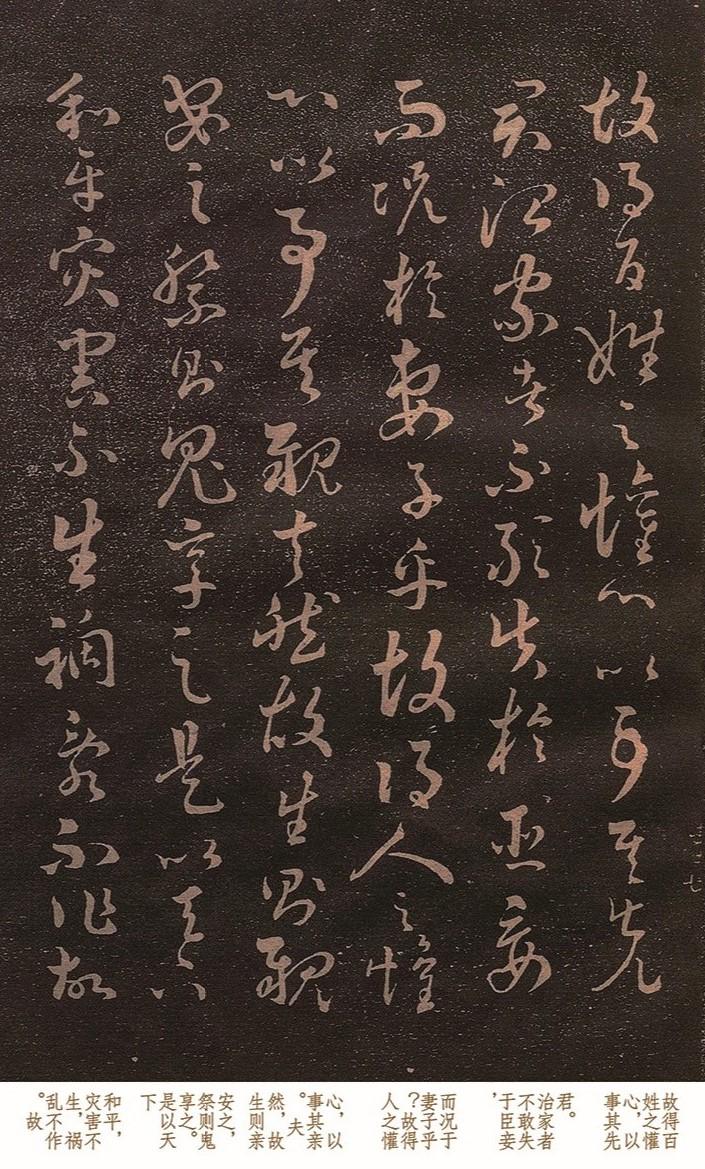 故得百姓之懽心以事其先
君治家者不敢失於臣妾
而況於妻子乎故得人之懽
心以事其親夫然故生則親
安之祭則鬼享之是以天下
和平灾害不生禍亂不作故
故得百
姓之懽
心，以
事其先
君。
治家者
不敢失
于臣妾
，
而况于
妻子乎
？故得
人之懽
心，以
事其亲
。夫
然，故
生则亲
安之，
祭则鬼
享之。
是以天
下
和平，
灾害不
生，祸
乱不作
。故